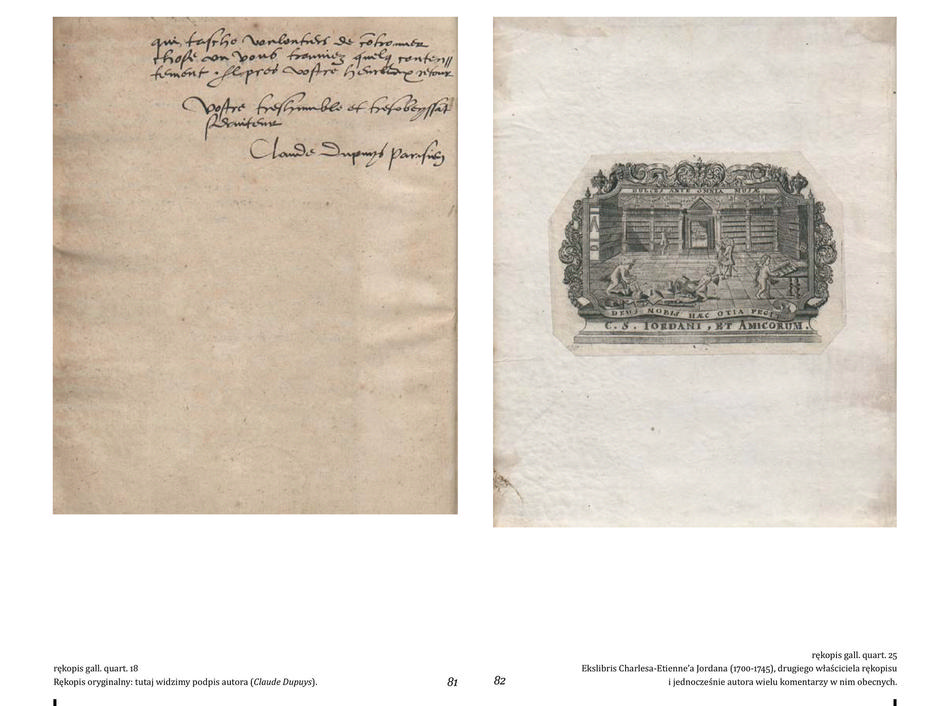 qui tasche vonlontiers de cõtrouuer
chose ou vous trouuiez quelq conten//
tement. Apres vostre heureux retour
Vostre treshumble et tresobeyssãt
seruiteur
Claude Dupuys Parisien
DULCES ANTE OMNIA MUSÆ
DEUS NOBIS HÆC OTIA FECIT
C. S. IORDANI, ET AMICORUM.
rękopis gall. quart. 18
Rękopis oryginalny: tutaj widzimy podpis autora (Claude Dupuys).
81
82
rękopis gall. quart. 25
Ekslibris Charlesa-Etienne’a Jordana (1700-1745), drugiego właściciela rękopisu
i jednocześnie autora wielu komentarzy w nim obecnych.